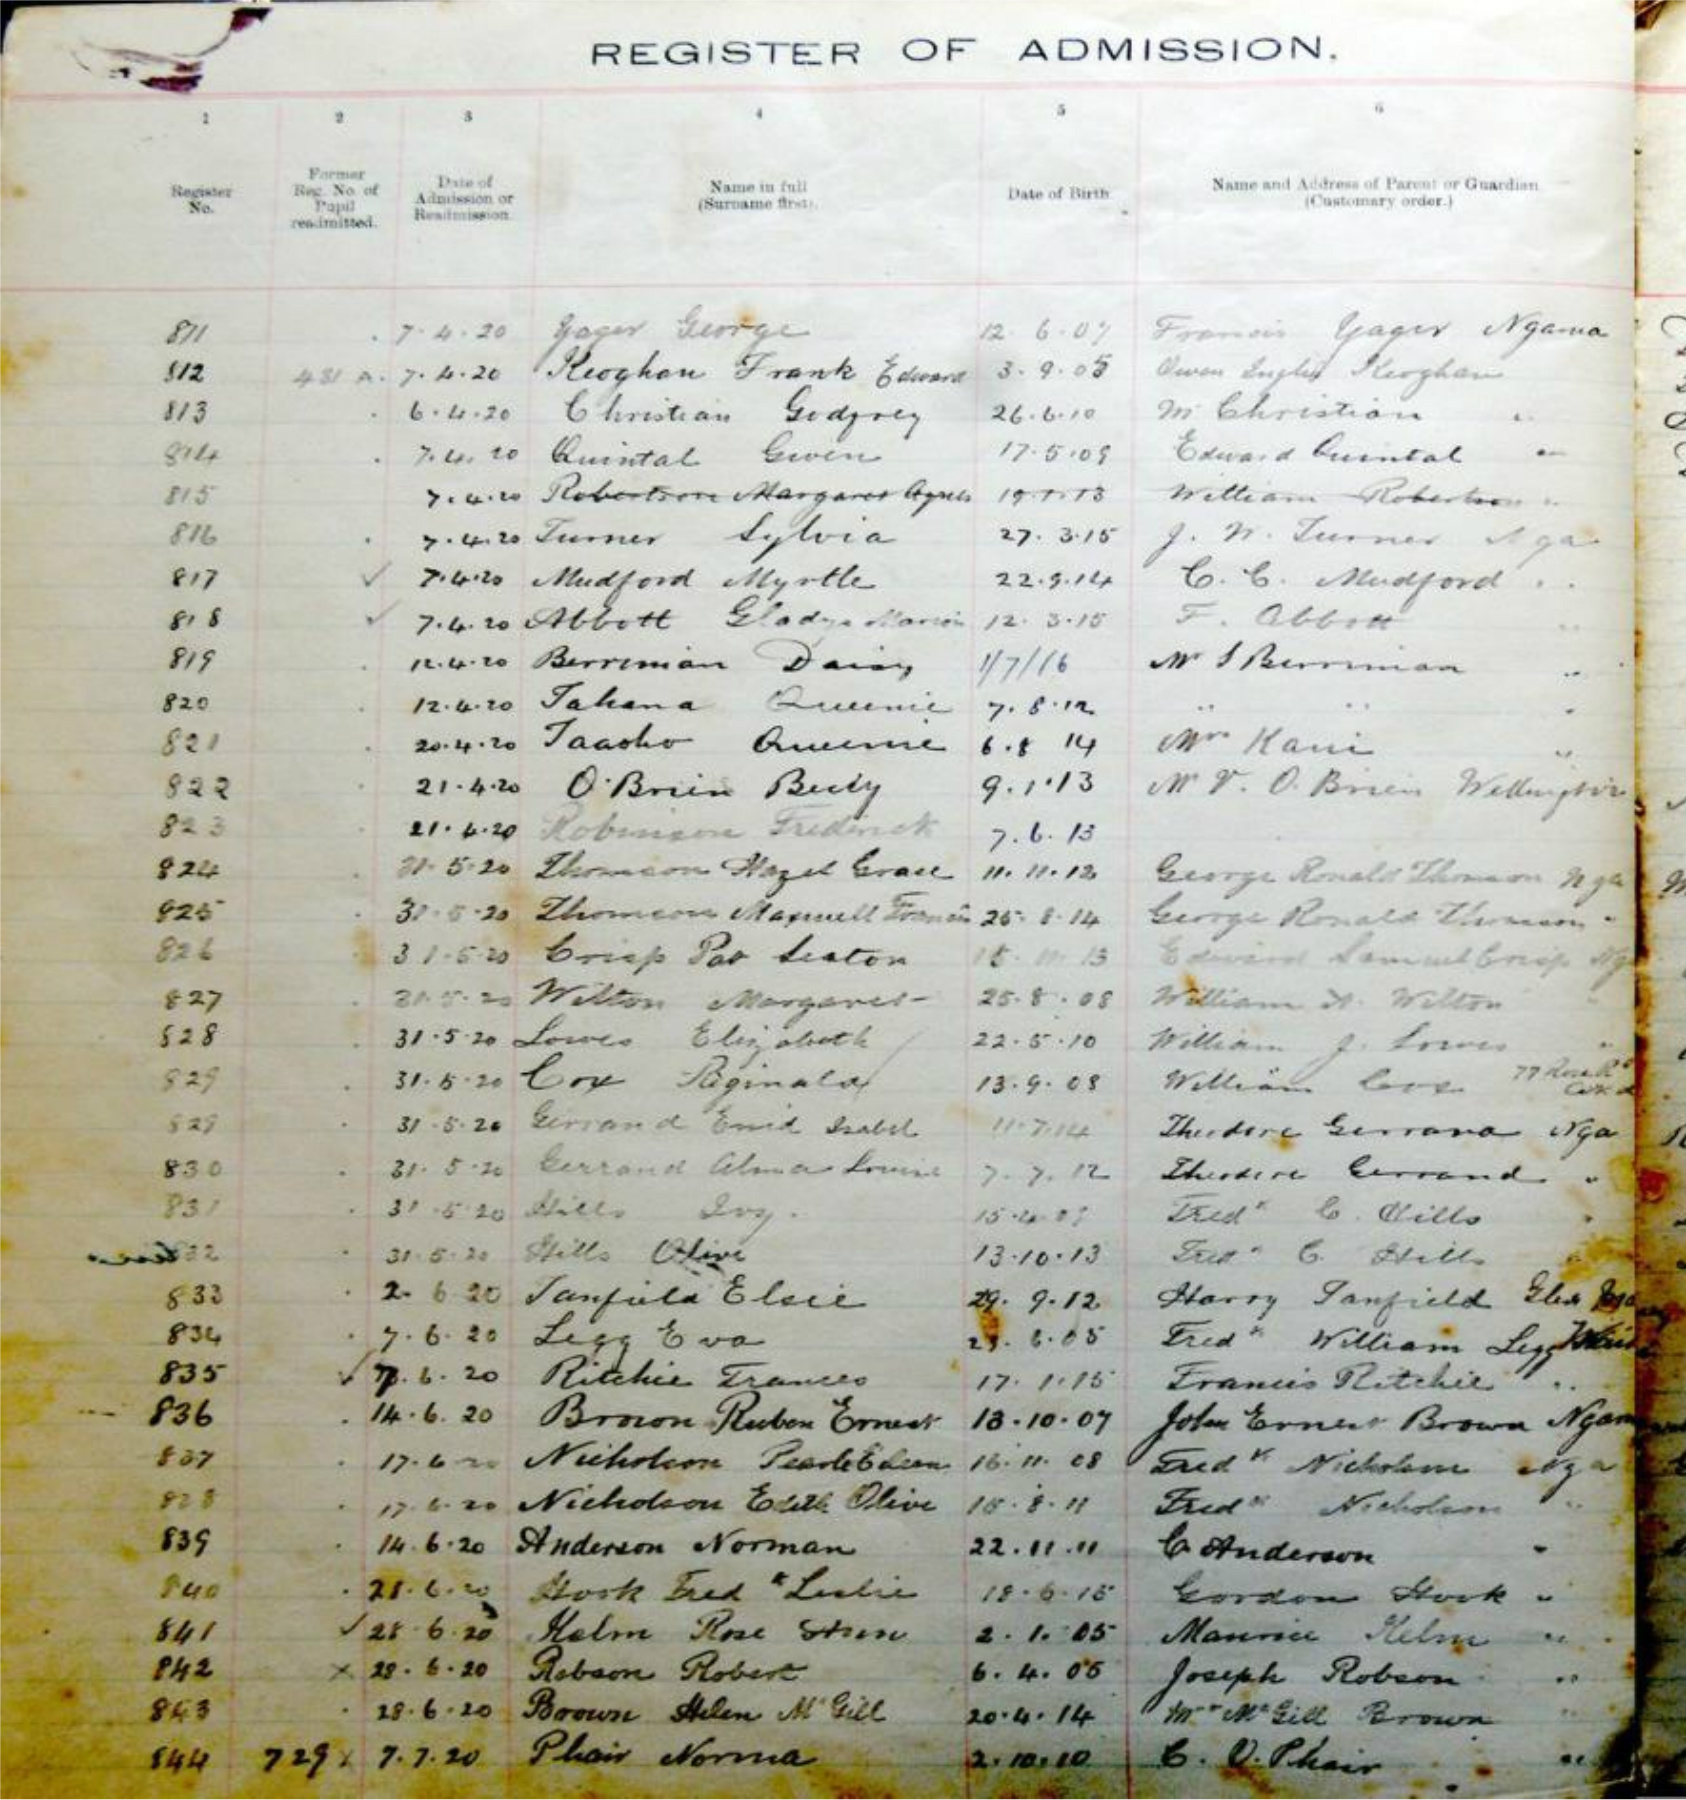 REGISTER OF ADMISSION.
1 2 3 4 5 6
Register No. Former Reg. No. of Pupil readmitted. Date of Admission or Readmission Name in full (Surname first). Date of Birth Name and Address of Parent or Guardian (Customary order.)
811 7.4.20 Yager George 12.6.07 Francis Yager Ngarua
812 431 7.4.20 Keoghan Frank Edward 3.9.05 Owen Keoghan
813 6.4.20 Christian Godfrey 26.6.10 M Christian "
814 7.4.20 Quintal Gwen 17.5.09 Edward Quintal "
815 7.4.20 Robertson Margaret Agnes 19.1.13 William Robertson "
816 7.4.20 Turner Sylvia 27.3.15 J. W. Turner Nga
817 ✓ 7.4.20 Mudford Myrtle 22.9.14 C. C. Mudford "
818 ✓ 7.4.20 Abbott Gladys Marion 12.3.15 F. Abbott "
819 12.4.20 Berriman Daisy 1/7/16 Mr S Berriman "
820 12.4.20 Tahana Queenie 7.8.12 " " "
821 20.4.20 Taaoho Queenie 6.8 14 Mrs Kani "
822 21.4.20 O'Brien 9.1.13 Mr V. O'Brien Wellington
823 21.4.20 Robinson Frederick 7.6.13
824 31.5.20 Thomson Hazel Grace 11.11.12 George Ronald Thomson Nga
825 31.5.20 Thomson Maxwell Francis 25.8.14 George Ronald Thomson "
826 31.5.20 Crisp Pat Seaton 15.11.13 Edward Samuel Crisp Ng
827 31.5.20 Wilton Margaret 25.8.08 William H. Wilton "
828 31.5.20 Lowes Elizabeth 22.5.10 William J. Lowes "
829 31.5.20 Cox Reginald 13.9.08 William Cox 77 Rose Rd
829 31.5.20 Gerrand Enid Isabel 11.7.14 Theodore Gerrand Nga
830 31.5.20 Gerrand Alma Louise 7.7.12 Theodore Gerrand "
831 31.5.20 Hills Ivy. 15.4.09 Fredk C. Hills "
832 31.5.20 Hills Olive 13.10.13 Fredk C. Hills "
833 2.6.20 Tanfield Elsie 29.9.12 Harry Tanfield Glen
834 7.6.20 Legg Eva 6.05 Fredk William Legg
835 ✓ 7.6.20 Ritchie Frances 17.1.15 Francis Ritchie "
836 14.6.20 Brown Reuben Ernest 13.10.07 John Ernest Brown Ngarua
837 17.6.20 Nicholson Pearle Eileen 16.11.08 Fredk Nicholson Nga
838 17.6.20 Nicholson Edith Olive 15.8.11 Fredk Nicholson "
839 14.6.20 Anderson Norman 22.11.11 C Anderson "
840 28.6.20 Hook Fredk Leslie 18.6.15 Gordon Hook "
841 ✓ 28.6.20 Kelm Rose 2.1.05 Maurice Kelm "
842 x 28.6.20 Robson Robert 6.4.05 Joseph Robson "
843 28.6.20 Brown Helen McGill 20.4.14 McGill Brown "
844 729 x 7.7.20 Phair Norma 2.10.10 C. O. Phair "